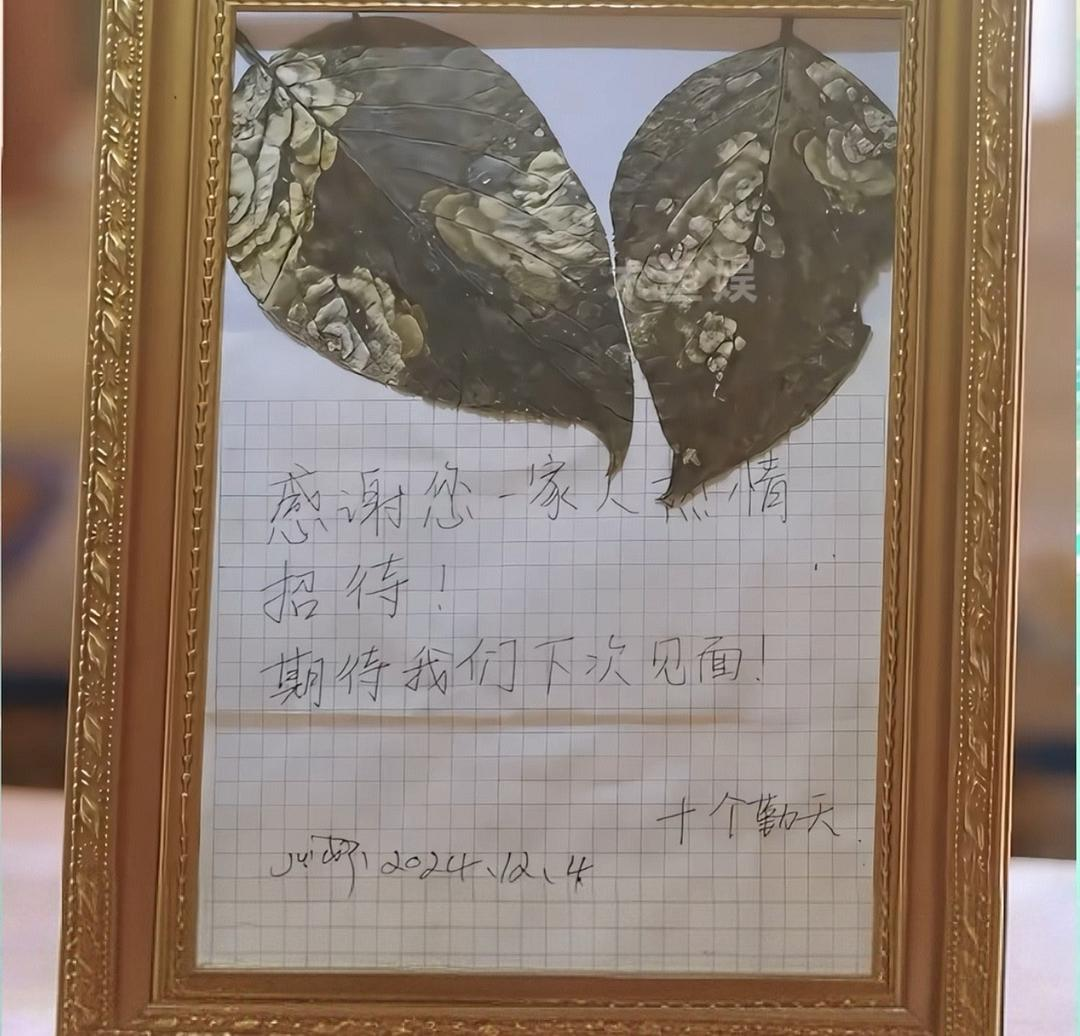 感谢您一家人热情
招待！
期待我们下次见面！
十个勤天
2024.12.4